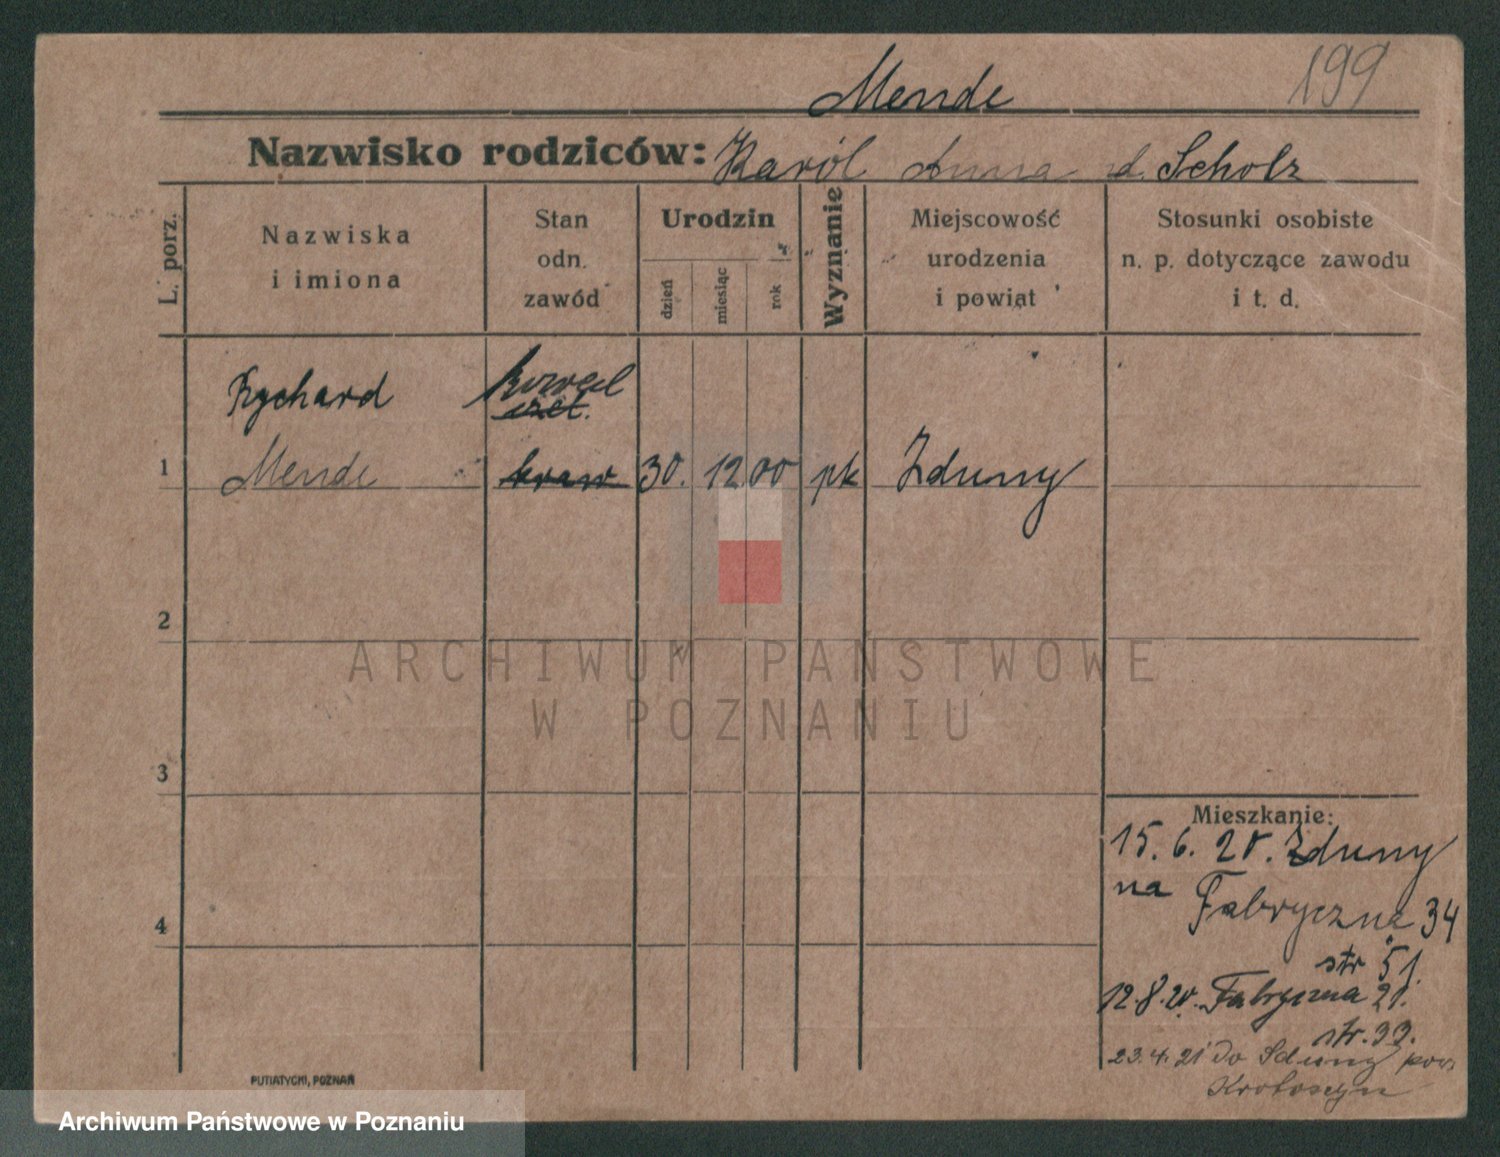 199
Mende
Nazwisko rodziców: Karól Anna d. Scholz
L. porz.
Nazwiska
i imiona
Stan
odn.
zawód
Urodzin
dzień
miesiąc
rok
Wyznanie
Miejscowość
urodzenia
i powiat
Stosunki osobiste
n. p. dotyczące zawodu
i t. d.
Rychard
Kowal
czel.
1 Mende kraw 30. 12 00 pk Zduny
2
ARCHIWUM PAŃSTWOWE
W POZNANIU
3
Mieszkanie:
15. 6. 20. Zduny
na Fabryczne 34
4
str 51.
12.8.20. Fabryczna 21.
str. 99.
23.4.21 do Zduny pow.
Krotoszyn
PUTIATYCKI, POZNAŃ
Archiwum Państwowe w Poznaniu